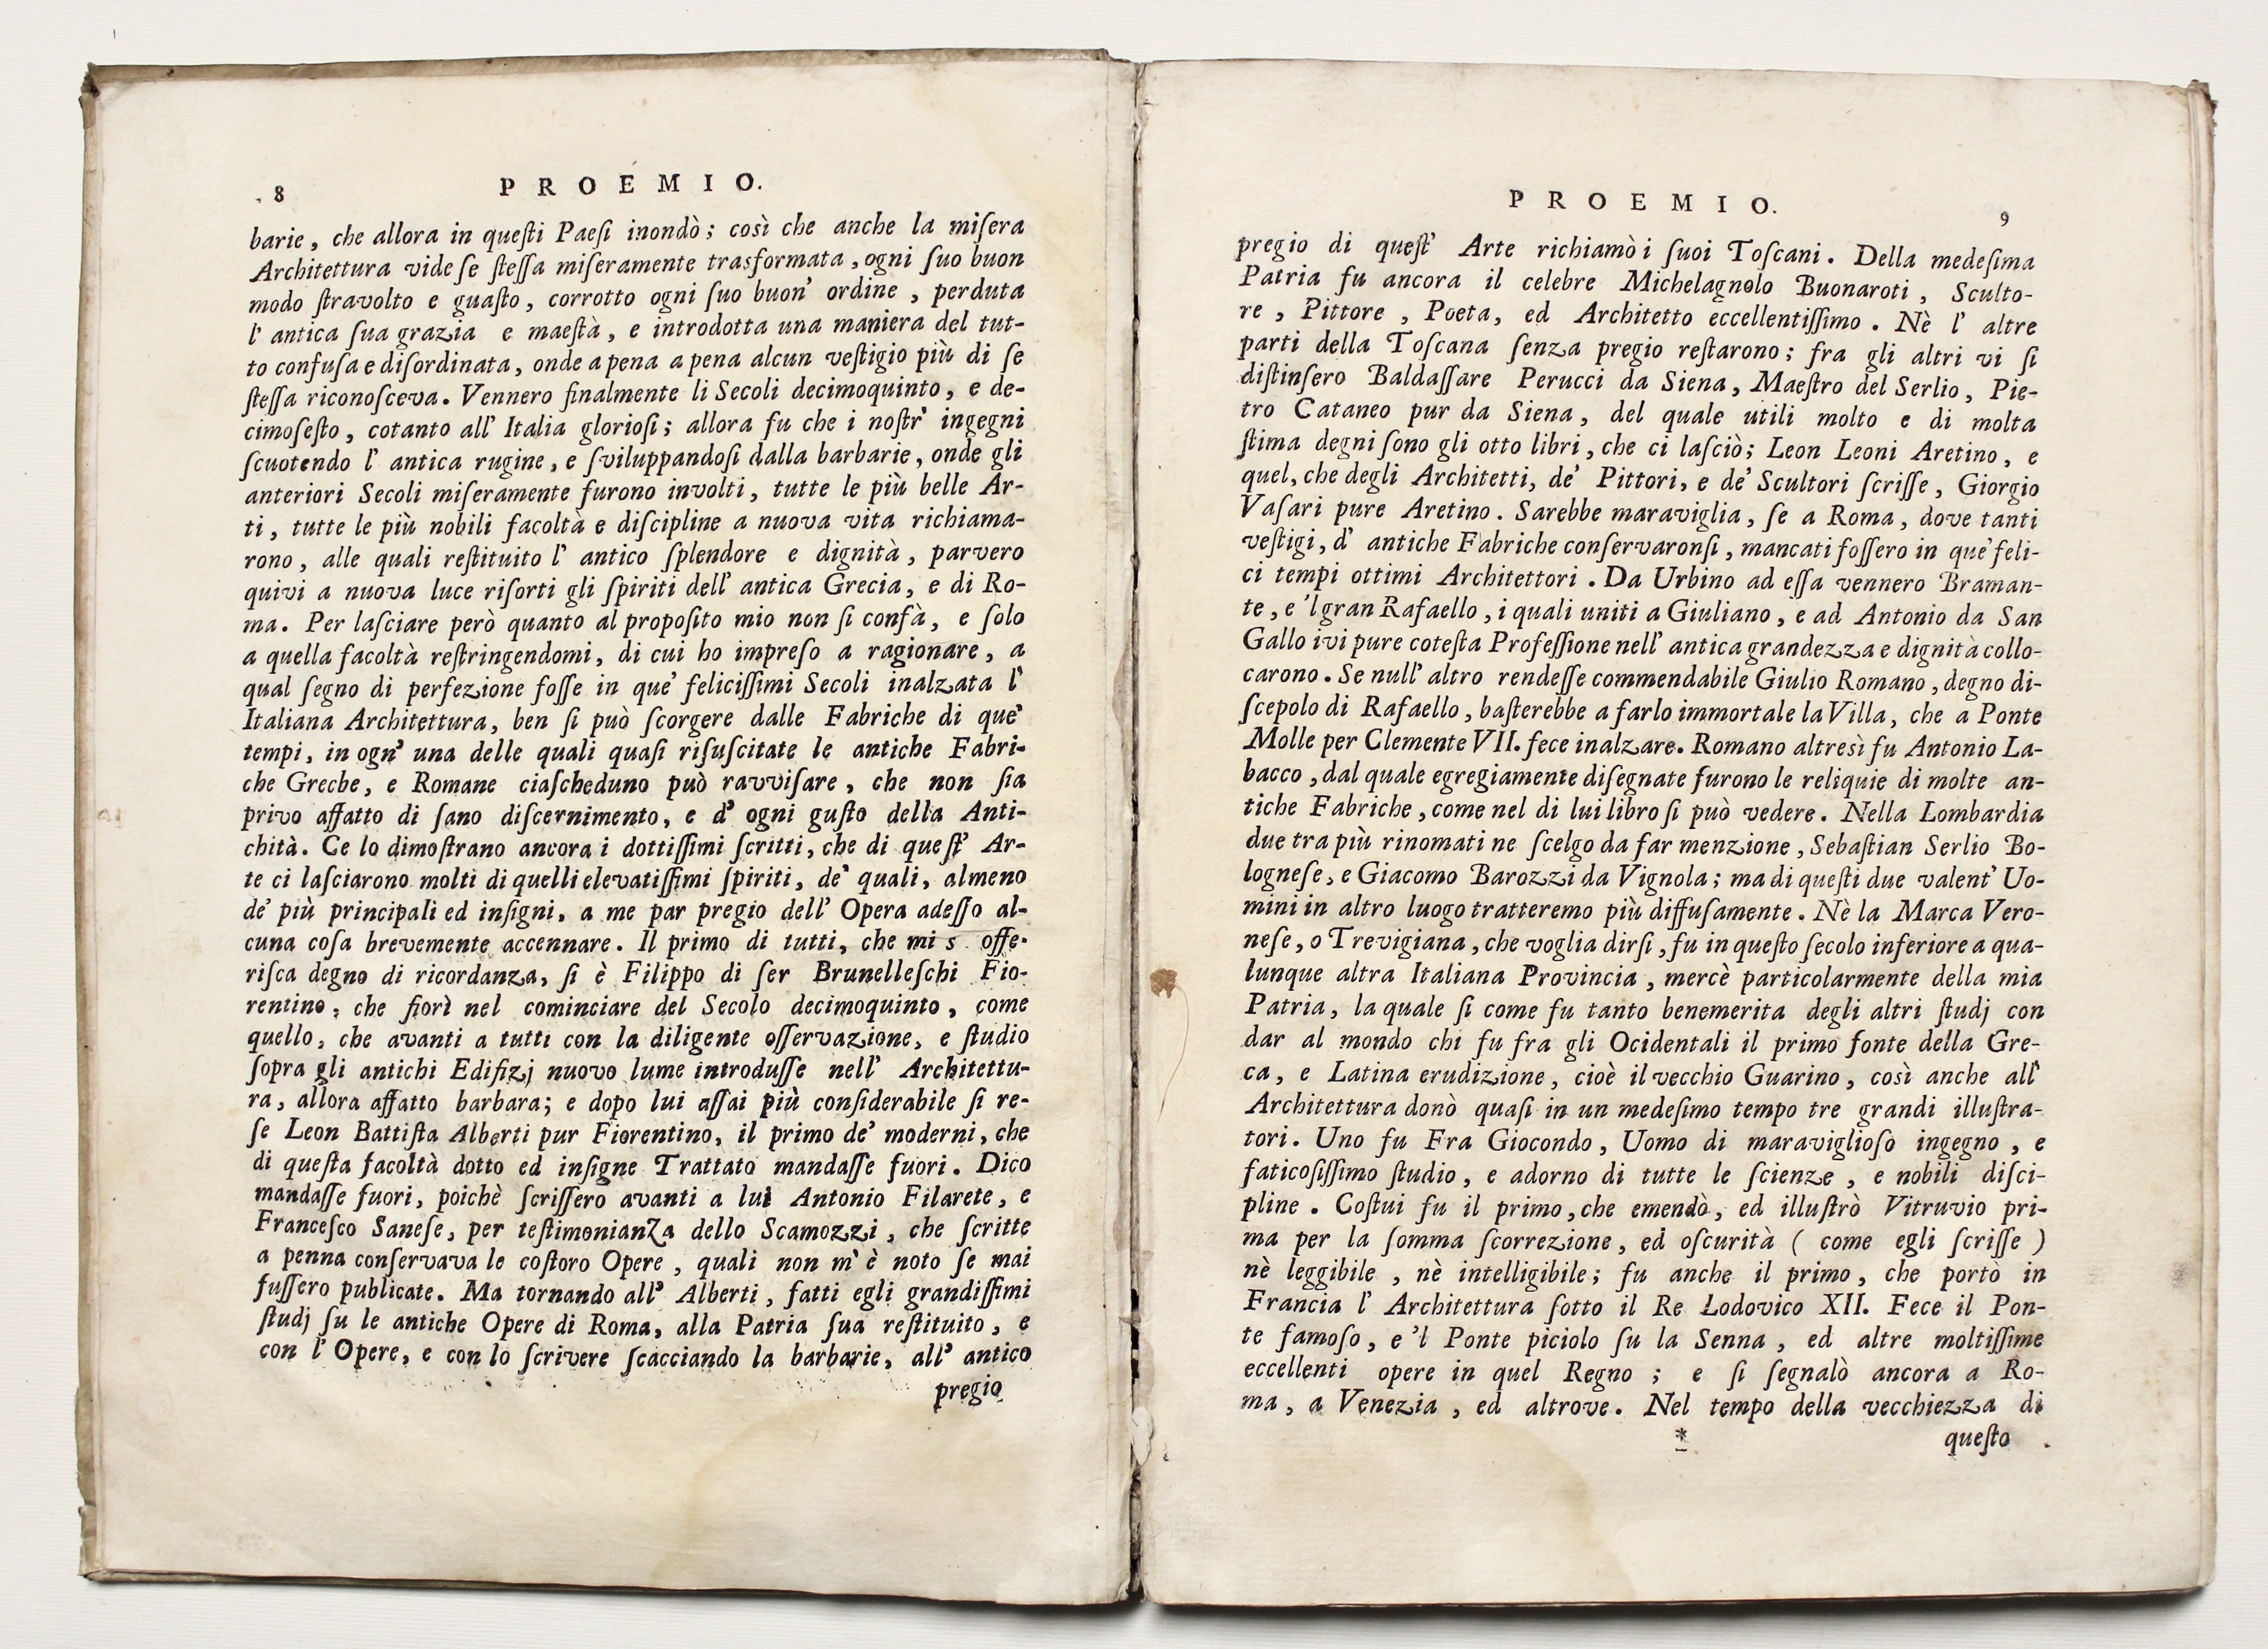 8
PROEMIO.
barie, che allora in queſti Paeſi inondò; così che anche la miſera
Architettura vide ſe ſteſſa miſeramente trasformata, ogni ſuo buon
modo ſtravolto e guaſto, corrotto ogni ſuo buon' ordine, perduta
l' antica ſua grazia e maeſtà, e introdotta una maniera del tut-
to confuſa e diſordinata, onde a pena a pena alcun veſtigio più di ſe
ſteſſa riconoſceva. Vennero finalmente li Secoli decimoquinto, e de-
cimoſeſto, cotanto all' Italia glorioſi; allora fu che i noſtr' ingegni
ſcuotendo l' antica rugine, e ſviluppandoſi dalla barbarie, onde gli
anteriori Secoli miſeramente furono involti, tutte le più belle Ar-
ti, tutte le più nobili facoltà e diſcipline a nuova vita richiama-
rono, alle quali reſtituito l' antico ſplendore e dignità, parvero
quivi a nuova luce riſorti gli ſpiriti dell' antica Grecia, e di Ro-
ma. Per laſciare però quanto al propoſito mio non ſi confà, e ſolo
a quella facoltà reſtringendomi, di cui ho impreſo a ragionare, a
qual ſegno di perfezione foſſe in que' feliciſſimi Secoli inalzata l'
Italiana Architettura, ben ſi può ſcorgere dalle Fabriche di que'
tempi, in ogn' una delle quali quaſi riſuſcitate le antiche Fabri-
che Greche, e Romane ciaſcheduno può ravviſare, che non ſia
privo affatto di ſano diſcernimento, e d' ogni guſto della Anti-
chità. Ce lo dimoſtrano ancora i dottiſſimi ſcritti, che di queſt' Ar-
te ci laſciarono molti di quelli elevatiſſimi ſpiriti, de' quali, almeno
de' più principali ed inſigni, a me par pregio dell' Opera adeſſo al-
cuna coſa brevemente accennare. Il primo di tutti, che mi s offe-
riſca degno di ricordanza, ſi è Filippo di ſer Brunelleſchi Fio-
rentino, che fiorì nel cominciare del Secolo decimoquinto, come
quello, che avanti a tutti con la diligente oſſervazione, e ſtudio
ſopra gli antichi Edifizj nuovo lume introduſſe nell' Architettu-
ra, allora affatto barbara; e dopo lui aſſai più conſiderabile ſi re-
ſe Leon Battiſta Alberti pur Fiorentino, il primo de' moderni, che
di queſta facoltà dotto ed inſigne Trattato mandaſſe fuori. Dico
mandaſſe fuori, poichè ſcriſſero avanti a lui Antonio Filarete, e
Franceſco Saneſe, per teſtimonianza dello Scamozzi, che ſcritte
a penna conſervava le coſtoro Opere, quali non m' è noto ſe mai
fuſſero publicate. Ma tornando all' Alberti, fatti egli grandiſſimi
ſtudj ſu le antiche Opere di Roma, alla Patria ſua reſtituito, e
con l' Opere, e con lo ſcrivere ſcacciando la barbarie, all' antico
pregio
PROEMIO.
9
pregio di queſt' Arte richiamò i ſuoi Toſcani. Della medeſima
Patria fu ancora il celebre Michelagnolo Buonaroti, Sculto-
re, Pittore, Poeta, ed Architetto eccellentiſſimo. Nè l' altre
parti della Toſcana ſenza pregio reſtarono; fra gli altri vi ſi
diſtinſero Baldaſſare Perucci da Siena, Maeſtro del Serlio, Pie-
tro Cataneo pur da Siena, del quale utili molto e di molta
ſtima degni ſono gli otto libri, che ci laſciò; Leon Leoni Aretino, e
quel, che degli Architetti, de' Pittori, e de' Scultori ſcriſſe, Giorgio
Vaſari pure Aretino. Sarebbe maraviglia, ſe a Roma, dove tanti
veſtigi, d' antiche Fabriche conſervaronſi, mancati foſſero in que' feli-
ci tempi ottimi Architettori. Da Urbino ad eſſa vennero Braman-
te, e 'l gran Rafaello, i quali uniti a Giuliano, e ad Antonio da San
Gallo ivi pure coteſta Profeſſione nell' antica grandezza e dignità collo-
carono. Se null' altro rendeſſe commendabile Giulio Romano, degno di-
ſcepolo di Rafaello, baſterebbe a farlo immortale la Villa, che a Ponte
Molle per Clemente VII. fece inalzare. Romano altresì fu Antonio La-
bacco, dal quale egregiamente diſegnate furono le reliquie di molte an-
tiche Fabriche, come nel di lui libro ſi può vedere. Nella Lombardia
due tra più rinomati ne ſcelgo da far menzione, Sebaſtian Serlio Bo-
logneſe, e Giacomo Barozzi da Vignola; ma di queſti due valent' Uo-
mini in altro luogo tratteremo più diffuſamente. Nè la Marca Vero-
neſe, o Trevigiana, che voglia dirſi, fu in queſto ſecolo inferiore a qua-
lunque altra Italiana Provincia, mercè particolarmente della mia
Patria, la quale ſi come fu tanto benemerita degli altri ſtudj con
dar al mondo chi fu fra gli Ocidentali il primo fonte della Gre-
ca, e Latina erudizione, cioè il vecchio Guarino, così anche all'
Architettura donò quaſi in un medeſimo tempo tre grandi illuſtra-
tori. Uno fu Fra Giocondo, Uomo di maraviglioſo ingegno, e
faticoſiſſimo ſtudio, e adorno di tutte le ſcienze, e nobili diſci-
pline. Coſtui fu il primo, che emendò, ed illuſtrò Vitruvio pri-
ma per la ſomma ſcorrezione, ed oſcurità ( come egli ſcriſſe )
nè leggibile, nè intelligibile; fu anche il primo, che portò in
Francia l' Architettura ſotto il Re Lodovico XII. Fece il Pon-
te famoſo, e 'l Ponte piciolo ſu la Senna, ed altre moltiſſime
eccellenti opere in quel Regno; e ſi ſegnalò ancora a Ro-
ma, a Venezia, ed altrove. Nel tempo della vecchiezza di
* queſto